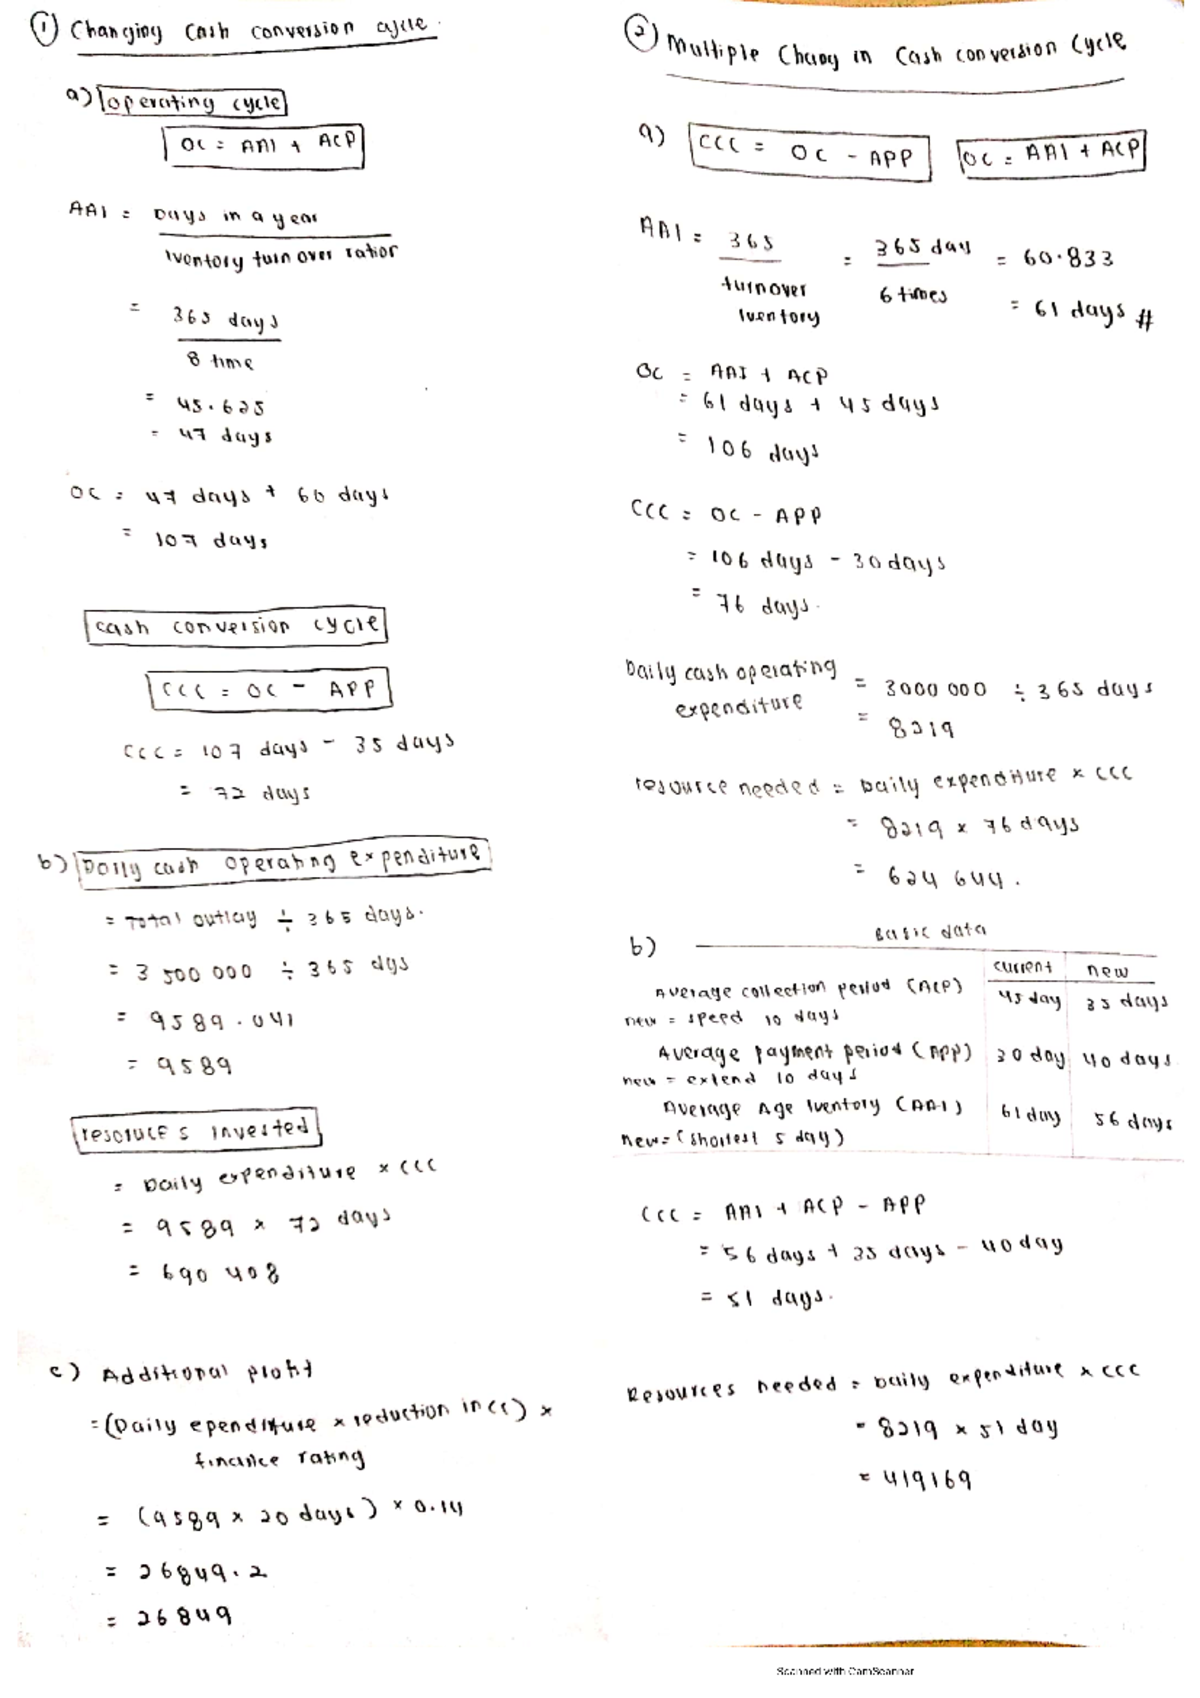 ① Changing Cash conversion cycle.
a) operating cycle
OC = AAI + ACP
AAI = Days in a year
Iventory turn over ratior
= 365 days
8 time
= 45.625
= 47 days
OC = 47 days + 60 days
= 107 days
cash conversion cycle
CCC = OC - APP
CCC = 107 days - 35 days
= 72 days
b) Daily cash operating expenditure
= Total outlay ÷ 365 days.
= 3 500 000 ÷ 365 dys
= 9589.041
= 9589
resources invested
= Daily expenditure × CCC
= 9589 × 72 days
= 690 408
c) Additional profit
= (Daily ependiture × reduction in cc) ×
finance rating
= (9589 × 20 days) × 0.14
= 26849.2
= 26849
② Multiple Chang in Cash conversion Cycle
a) CCC = OC - APP OC = AAI + ACP
AAI = 365 = 365 day = 60.833
turnover Iventory 6 times = 61 days #
OC = AAI + ACP
= 61 days + 45 days
= 106 days
CCC = OC - APP
= 106 days - 30 days
= 76 days.
Daily cash operating expenditure = 3000 000 ÷ 365 days
= 8219
resource needed = Daily expenditure × CCC
= 8219 × 76 days
= 624 644.
b) Basic data
current new
Average collection period (ACP) 45 day 35 days
new = speed 10 days
Average payment period (APP) 30 day 40 days
new = extend 10 days
Average Age Iventory (AAI) 61 day 56 days
new = (shortest 5 day)
CCC = AAI + ACP - APP
= 56 days + 35 days - 40 day
= 51 days.
Resources needed = Daily expenditure × CCC
= 8219 × 51 day
= 419169
Scanned with CamScanner